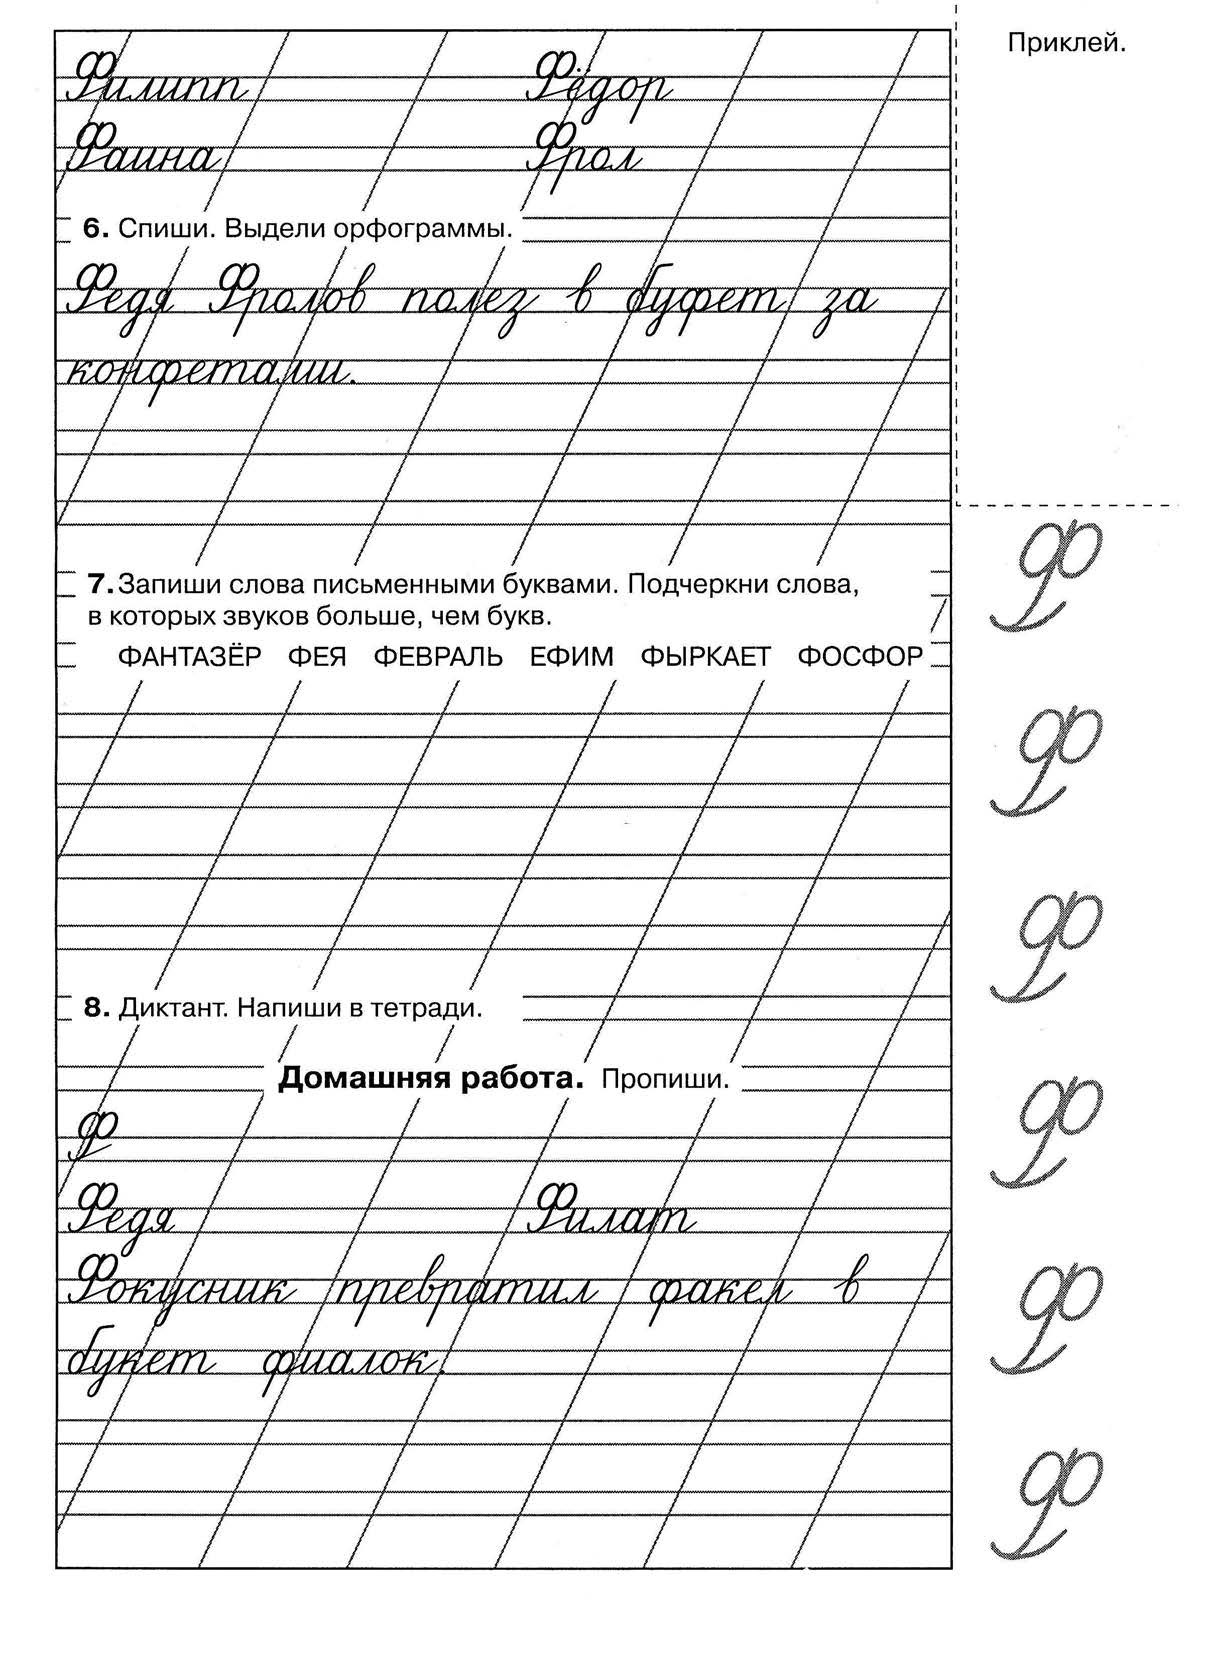 Приклей.
Филипп Фёдор
Фаина Фрол
6. Спиши. Выдели орфограммы.
Федя Фролов полез в буфет за
конфетами.
7. Запиши слова письменными буквами. Подчеркни слова,
в которых звуков больше, чем букв.
ФАНТАЗЁР ФЕЯ ФЕВРАЛЬ ЕФИМ ФЫРКАЕТ ФОСФОР
8. Диктант. Напиши в тетради.
Домашняя работа. Пропиши.
Ф
Федя Филат
Фокусник превратил факел в
букет фиалок.
Ф
Ф
Ф
Ф
Ф
Ф